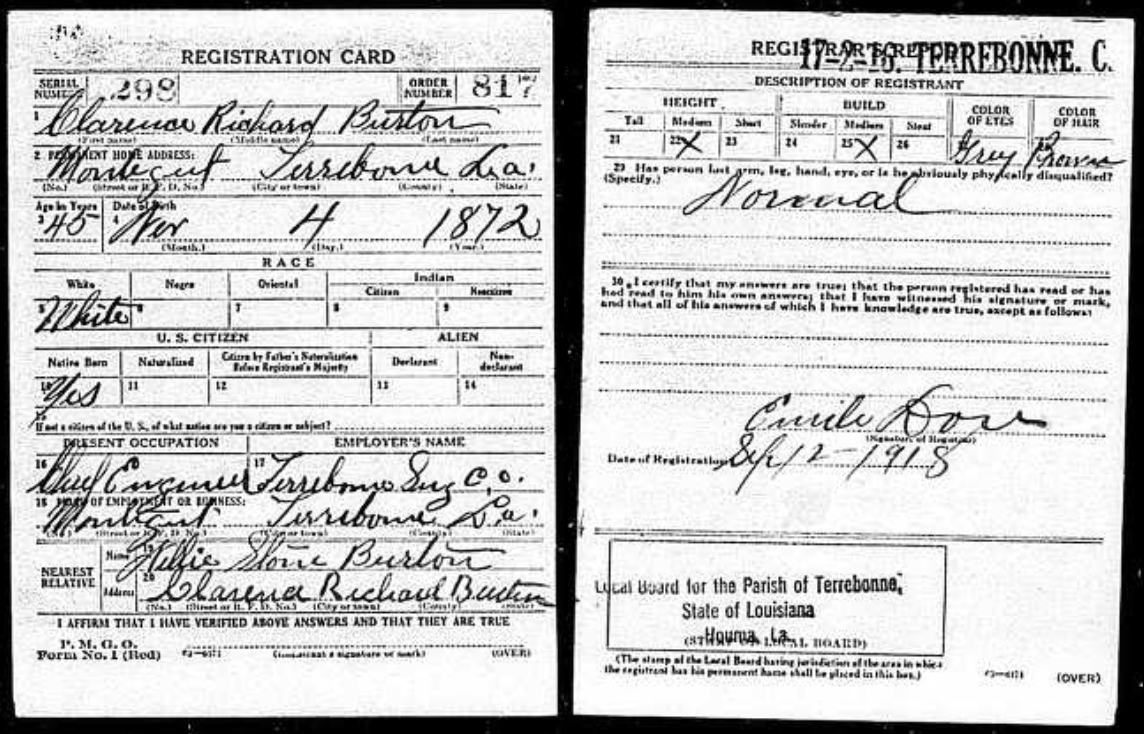 REGISTRATION CARD
SERIAL NUMBER 298 ORDER NUMBER 817
1 Clarence Richard Burton
(First name) (Middle name) (Last name)
2 PERMANENT HOME ADDRESS:
Montegut Terrebonne La.
(No.) (Street or R. F. D. No.) (City or town) (County) (State)
Age in Years Date of Birth
3 45 4 Nov 4 1872
(Month.) (Day.) (Year.)
RACE
White Negro Oriental Indian
Citizen Noncitizen
5 White 6 7 8 9
U. S. CITIZEN ALIEN
Native Born Naturalized Citizen by Father's Naturalization Before Registrant's Majority Declarant Non-declarant
10 Yes 11 12 13 14
15 If not a citizen of the U. S., of what nation are you a citizen or subject?
PRESENT OCCUPATION EMPLOYER'S NAME
16 Chief Engineer 17 Terrebonne Sug Co.
18 PLACE OF EMPLOYMENT OR BUSINESS:
Montegut Terrebonne La.
(No.) (Street or R. F. D. No.) (City or town) (County) (State)
NEAREST RELATIVE
Name 19 Burton
Address 20 Clarence Richard Burton
(No.) (Street or R. F. D. No.) (City or town) (County) (State)
I AFFIRM THAT I HAVE VERIFIED ABOVE ANSWERS AND THAT THEY ARE TRUE
P. M. G. O.
Form No. 1 (Red) (Registrant's signature or mark) (OVER)
REGISTRAR'S REPORT
17-2-16. TERREBONNE. C.
DESCRIPTION OF REGISTRANT
HEIGHT BUILD COLOR OF EYES COLOR OF HAIR
Tall Medium Short Slender Medium Stout
21 22 X 23 24 25 X 26 Grey Brown
29 Has person lost arm, leg, hand, eye, or is he obviously physically disqualified?
(Specify.) Normal
30 I certify that my answers are true; that the person registered has read or has
had read to him his own answers; that I have witnessed his signature or mark,
and that all of his answers of which I have knowledge are true, except as follows:
Emile
(Signature of Registrar)
Date of Registration Sep 12 - 1918
Local Board for the Parish of Terrebonne,
State of Louisiana
Houma, La.
(STAMP OF LOCAL BOARD)
(The stamp of the Local Board having jurisdiction of the area in which
the registrant has his permanent home shall be placed in this box.)
(OVER)